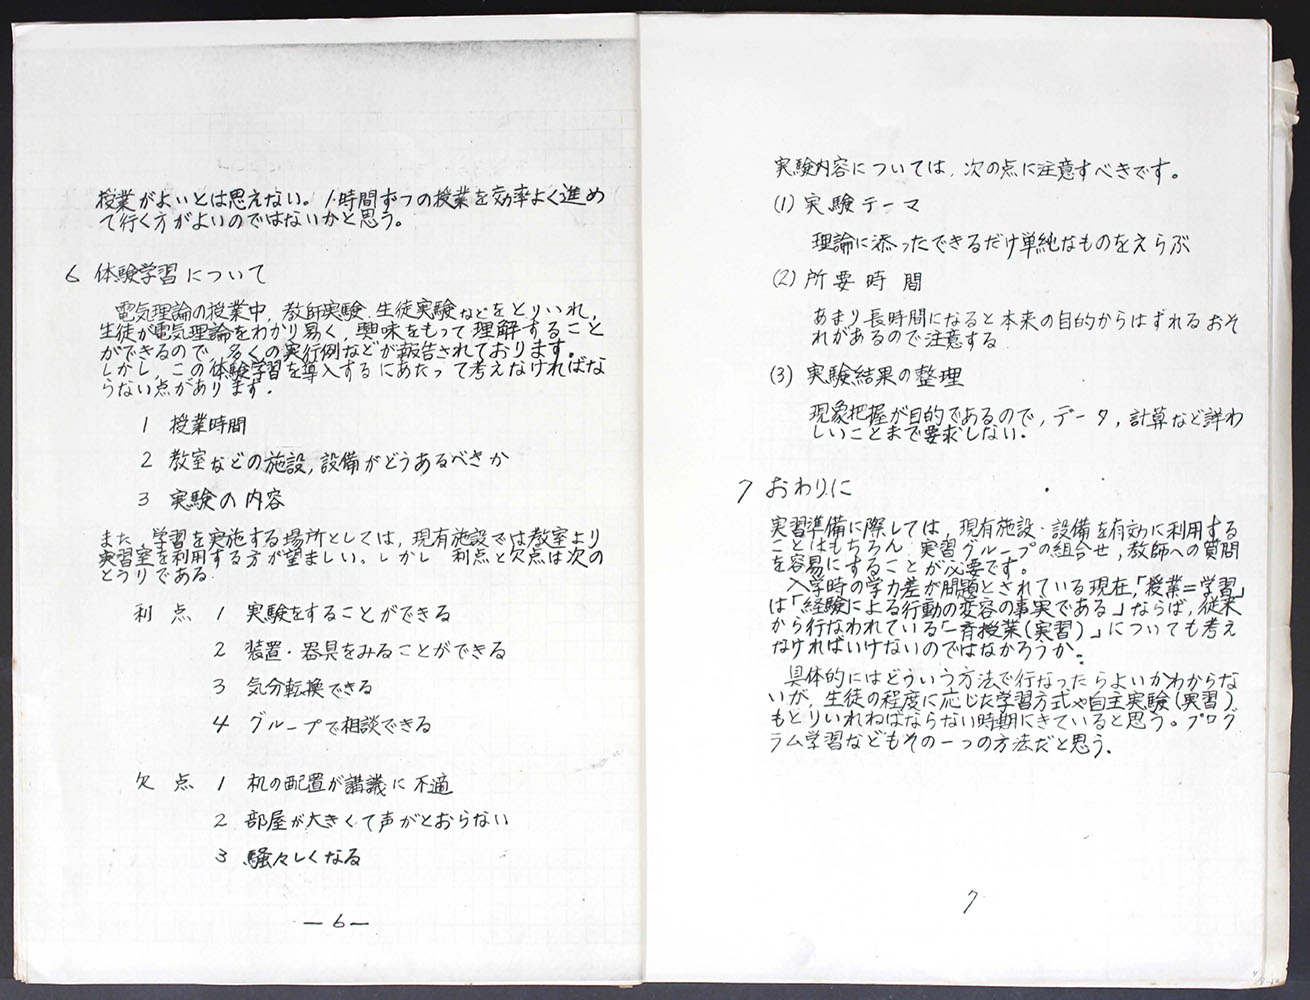 授業がよいとは思えない。1時間ずつの授業を効率よく進め
て行く方がよいのではないかと思う。
6 体験学習について
電気理論の授業中, 教師実験, 生徒実験などをとりいれ,
生徒が電気理論をわかり易く, 興味をもって理解すること
ができるので, 多くの実行例などが報告されております。
しかし, この体験学習を導入するにあたって考えなければな
らない点があります.
1 授業時間
2 教室などの施設, 設備がどうあるべきか
3 実験の内容
また, 学習を実施する場所としては, 現有施設では教室より
実習室を利用する方が望ましい。しかし 利点と欠点は次の
とうりである.
利点 1 実験をすることができる
2 装置・器具をみることができる
3 気分転換できる
4 グループで相談できる
欠点 1 机の配置が講議に不適
2 部屋が大きくて声がとおらない
3 騒々しくなる
—6—
実験内容については, 次の点に注意すべきです。
(1) 実験テーマ
理論に添ったできるだけ単純なものをえらぶ
(2) 所要時間
あまり長時間になると本来の目的からはずれるおそ
れがあるので注意する
(3) 実験結果の整理
現象把握が目的であるので, データ, 計算など詳わ
しいことまで要求しない.
7 おわりに
実習準備に際しては, 現有施設・設備を有効に利用する
ことはもちろん, 実習グループの組合せ, 教師への質問
を容易にすることが必要です。
入学時の学力差が問題とされている現在,「授業=学習」
は「経験による行動の変容の事実である」ならば, 従来
から行なわれている「一斉授業(実習)」についても考え
なければいけないのではなかろうか。
具体的にはどういう方法で行なったらよいかわからな
いが, 生徒の程度に応じた学習方式や自主実験(実習)
もとりいれねばならない時期にきていると思う。プログ
ラム学習などもその一つの方法だと思う.
7